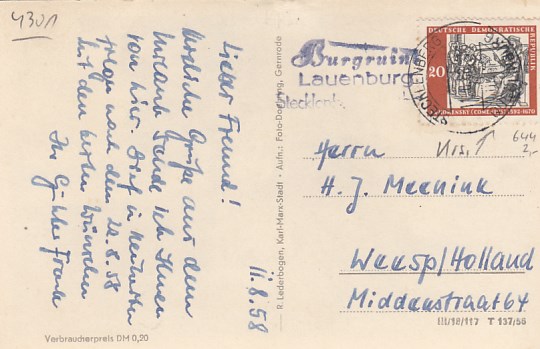 4301
Lieber Freund!
Herzliche Grüße aus dem
Urlaub sende ich Ihnen
von hier. Brief u. Neuheiten
folgen nach dem 20.8.58
Mit den besten Wünschen
Ihr Günther Frank
11.8.58
Verbraucherpreis DM 0,20
R. Lederbogen, Karl-Marx-Stadt - Aufn.: Foto- Gernrode
Burgruine
Lauenburg
Stecklenb.
STECKLENBERG
DEUTSCHE DEMOKRATISCHE
REPUBLIK
20
KOMENSKY (COMENIUS) 1592-1670
644
2,-
Herrn
H. J. Meenink
Weesp/Holland
Middenstraat 64
III/18/117 T 137/56